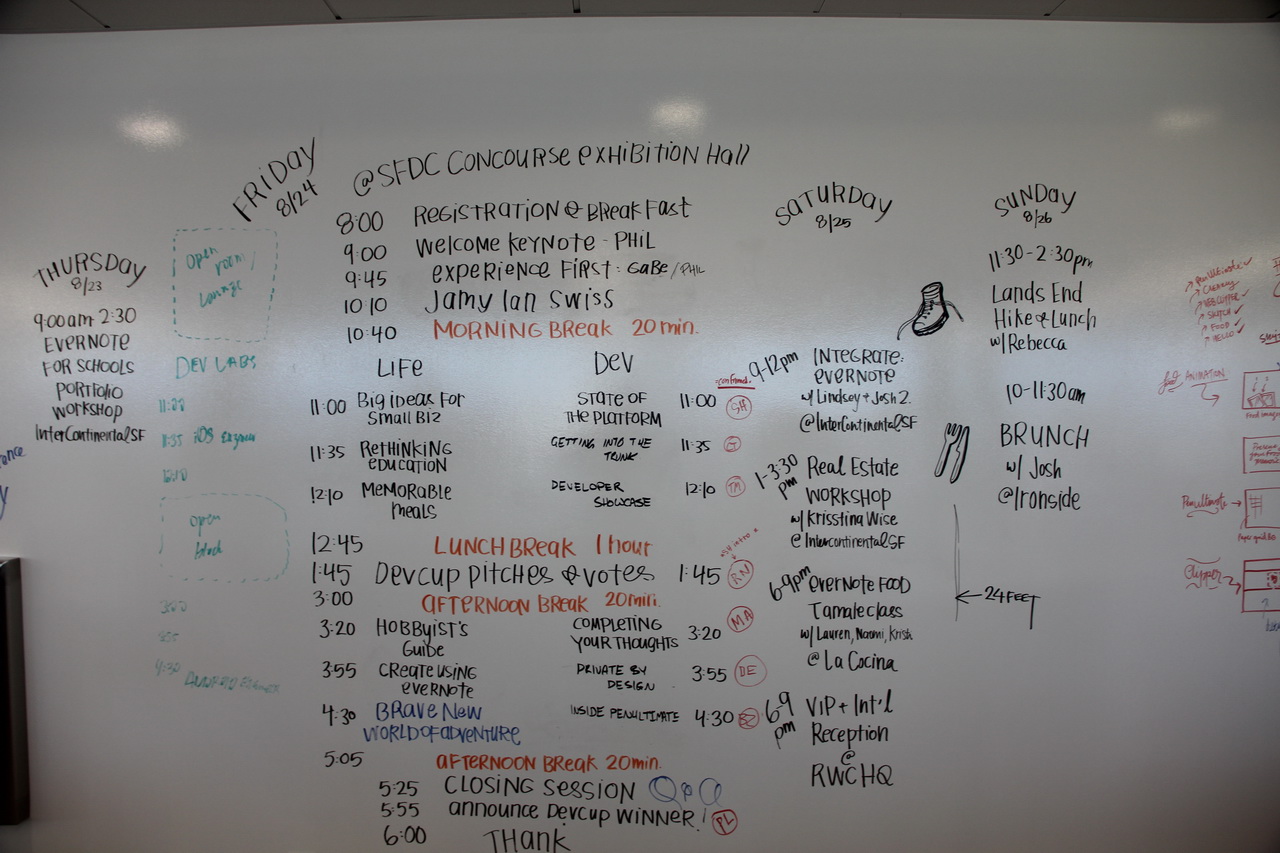 THURSDay
8/23
9:00am 2:30
EVERNOTE
FOR SCHOOLS
PORTFOLIO
WORKSHOP
InterContinentalSF
FRIDay
8/24
@SFDC CONCOURSE EXHIBITION Hall
8:00 REGISTRATION & BREAKFaST
9:00 WELCOME KEYNOTE - PHIL
9:45 EXPERIENCE FIRST: GaBe / PHIL
10:10 Jamy Ian Swiss
10:40 MORNING BREAK 20 min.
Open
room /
Lounge
DEV LABS
11:35 iOS
Open
4:30
LIFE
DEV
confirmed
11:00 Big ideas FOR
Small Biz
STATE OF
THE PLATFORM
11:00 SH
11:35 RETHINKING
EDUCATION
GETTING INTO THE
TRUNK
11:35
12:10 MEMORABLE
Meals
DEVELOPER
SHOWCASE
12:10 TM
12:45 LUNCH BREAK 1 hour
1:45 DEVCUP PITCHES & VOTES 1:45 RN
3:00 AFTERNOON BREAK 20min.
3:20 HOBBYIST'S
GUIDE
COMPLETING
YOUR THOUGHTS
3:20 MA
3:55 CREATE USING
EVERNOTE
PRIVATE BY
DESIGN
3:55 DE
4:30 BRAVE NEW
WORLD OF ADVENTURE
INSIDE PENULTIMATE
4:30
5:05 AFTERNOON BREAK 20min.
5:25 CLOSING SESSION Q&A
5:55 announce DEVCUP WINNER! PL
6:00 THANK
SATURDay
8/25
9-12pm INTEGRATE:
EVERNOTE
w/ Lindsey + Josh Z.
@InterContinentalSF
1-3:30
pm
Real Estate
WORKSHOP
w/ Krisstina Wise
@ IntercontinentalSF
6-9pm EVERNOTE FOOD
Tamale class
w/ Lauren, Naomi, Krish
@ La Cocina
6-9
pm
VIP + Int'l
Reception
@
RWCHQ
SUNDay
8/26
11:30-2:30pm
Lands End
Hike & Lunch
w/Rebecca
10-11:30am
BRUNCH
w/ Josh
@Ironside
24 FEET
Penultimate
SKITCH
FOOD
HELLO
ANIMATION
Penultimate
Clipper